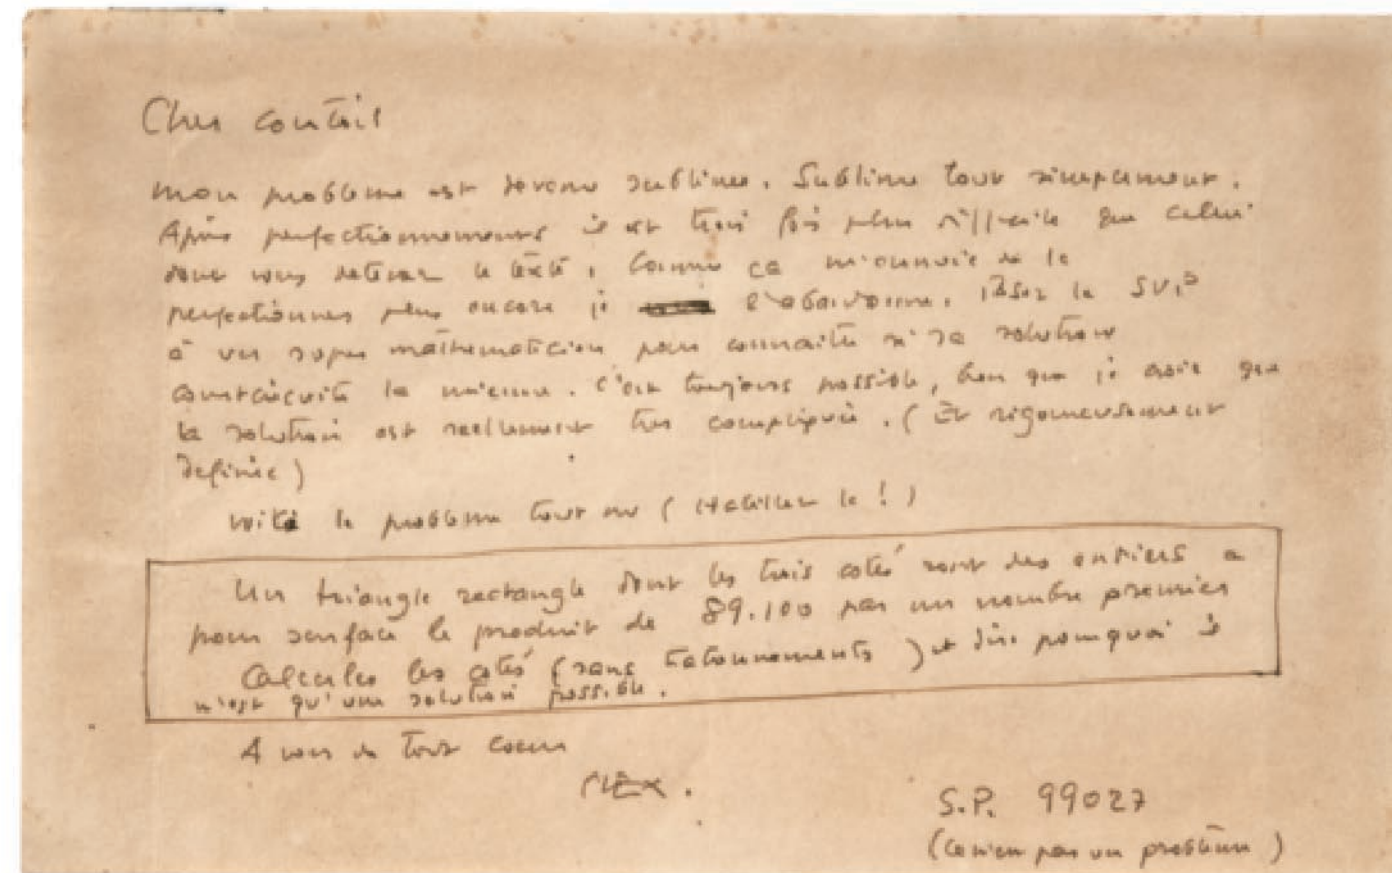 Cher contait
mon probleme est devenu sublime. Sublime tout simplement.
Après perfectionnements il est trois fois plus difficile que celui
dont vous detenez le texte. Comme ça m'ennuie de le
perfectionner plus encore je l'abandonne. Posez le SVP
à un super mathematicien pour connaitre si sa solution
courtcircuite la mienne. C'est toujours possible, bien que je crois que
la solution est reellement tres compliquée. (Et rigoureusement
definie)
voila le probleme tout nu (habillez le !)
Un triangle rectangle dont les trois cotés sont des entiers a
pour surface le produit de 89.100 par un nombre premier
Calculer les cotés (sans tatonnements) et dire pourquoi il
n'est qu'une solution possible.
A vous de tout coeur
S.P. 99027
(ce n'est pas un problème)